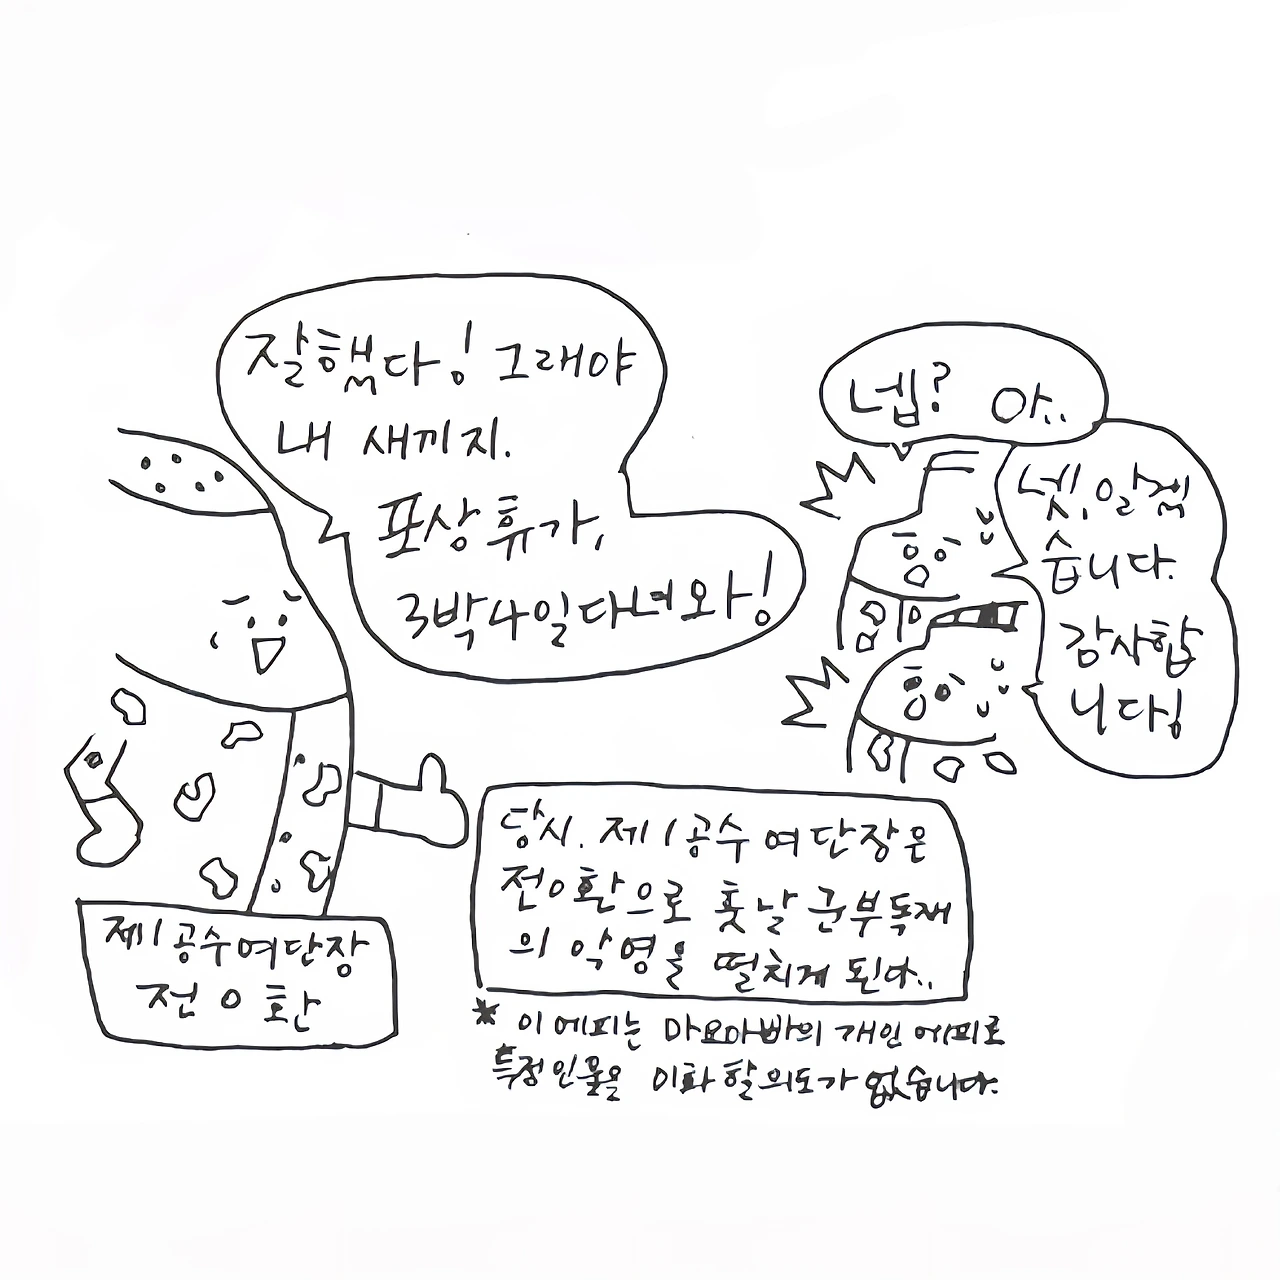 잘했다! 그래야
내 새끼지.
포상휴가,
3박4일다녀와!
넵? 아..
넷, 알겠
습니다.
감사합
니다!
제1공수여단장
전O환
당시. 제1공수 여단장은
전O환으로 훗날 군부독재
의 악명을 떨치게 된다..
* 이 에피는 마요아빠의 개인 에피로
특정인물을 미화할 의도가 없습니다.